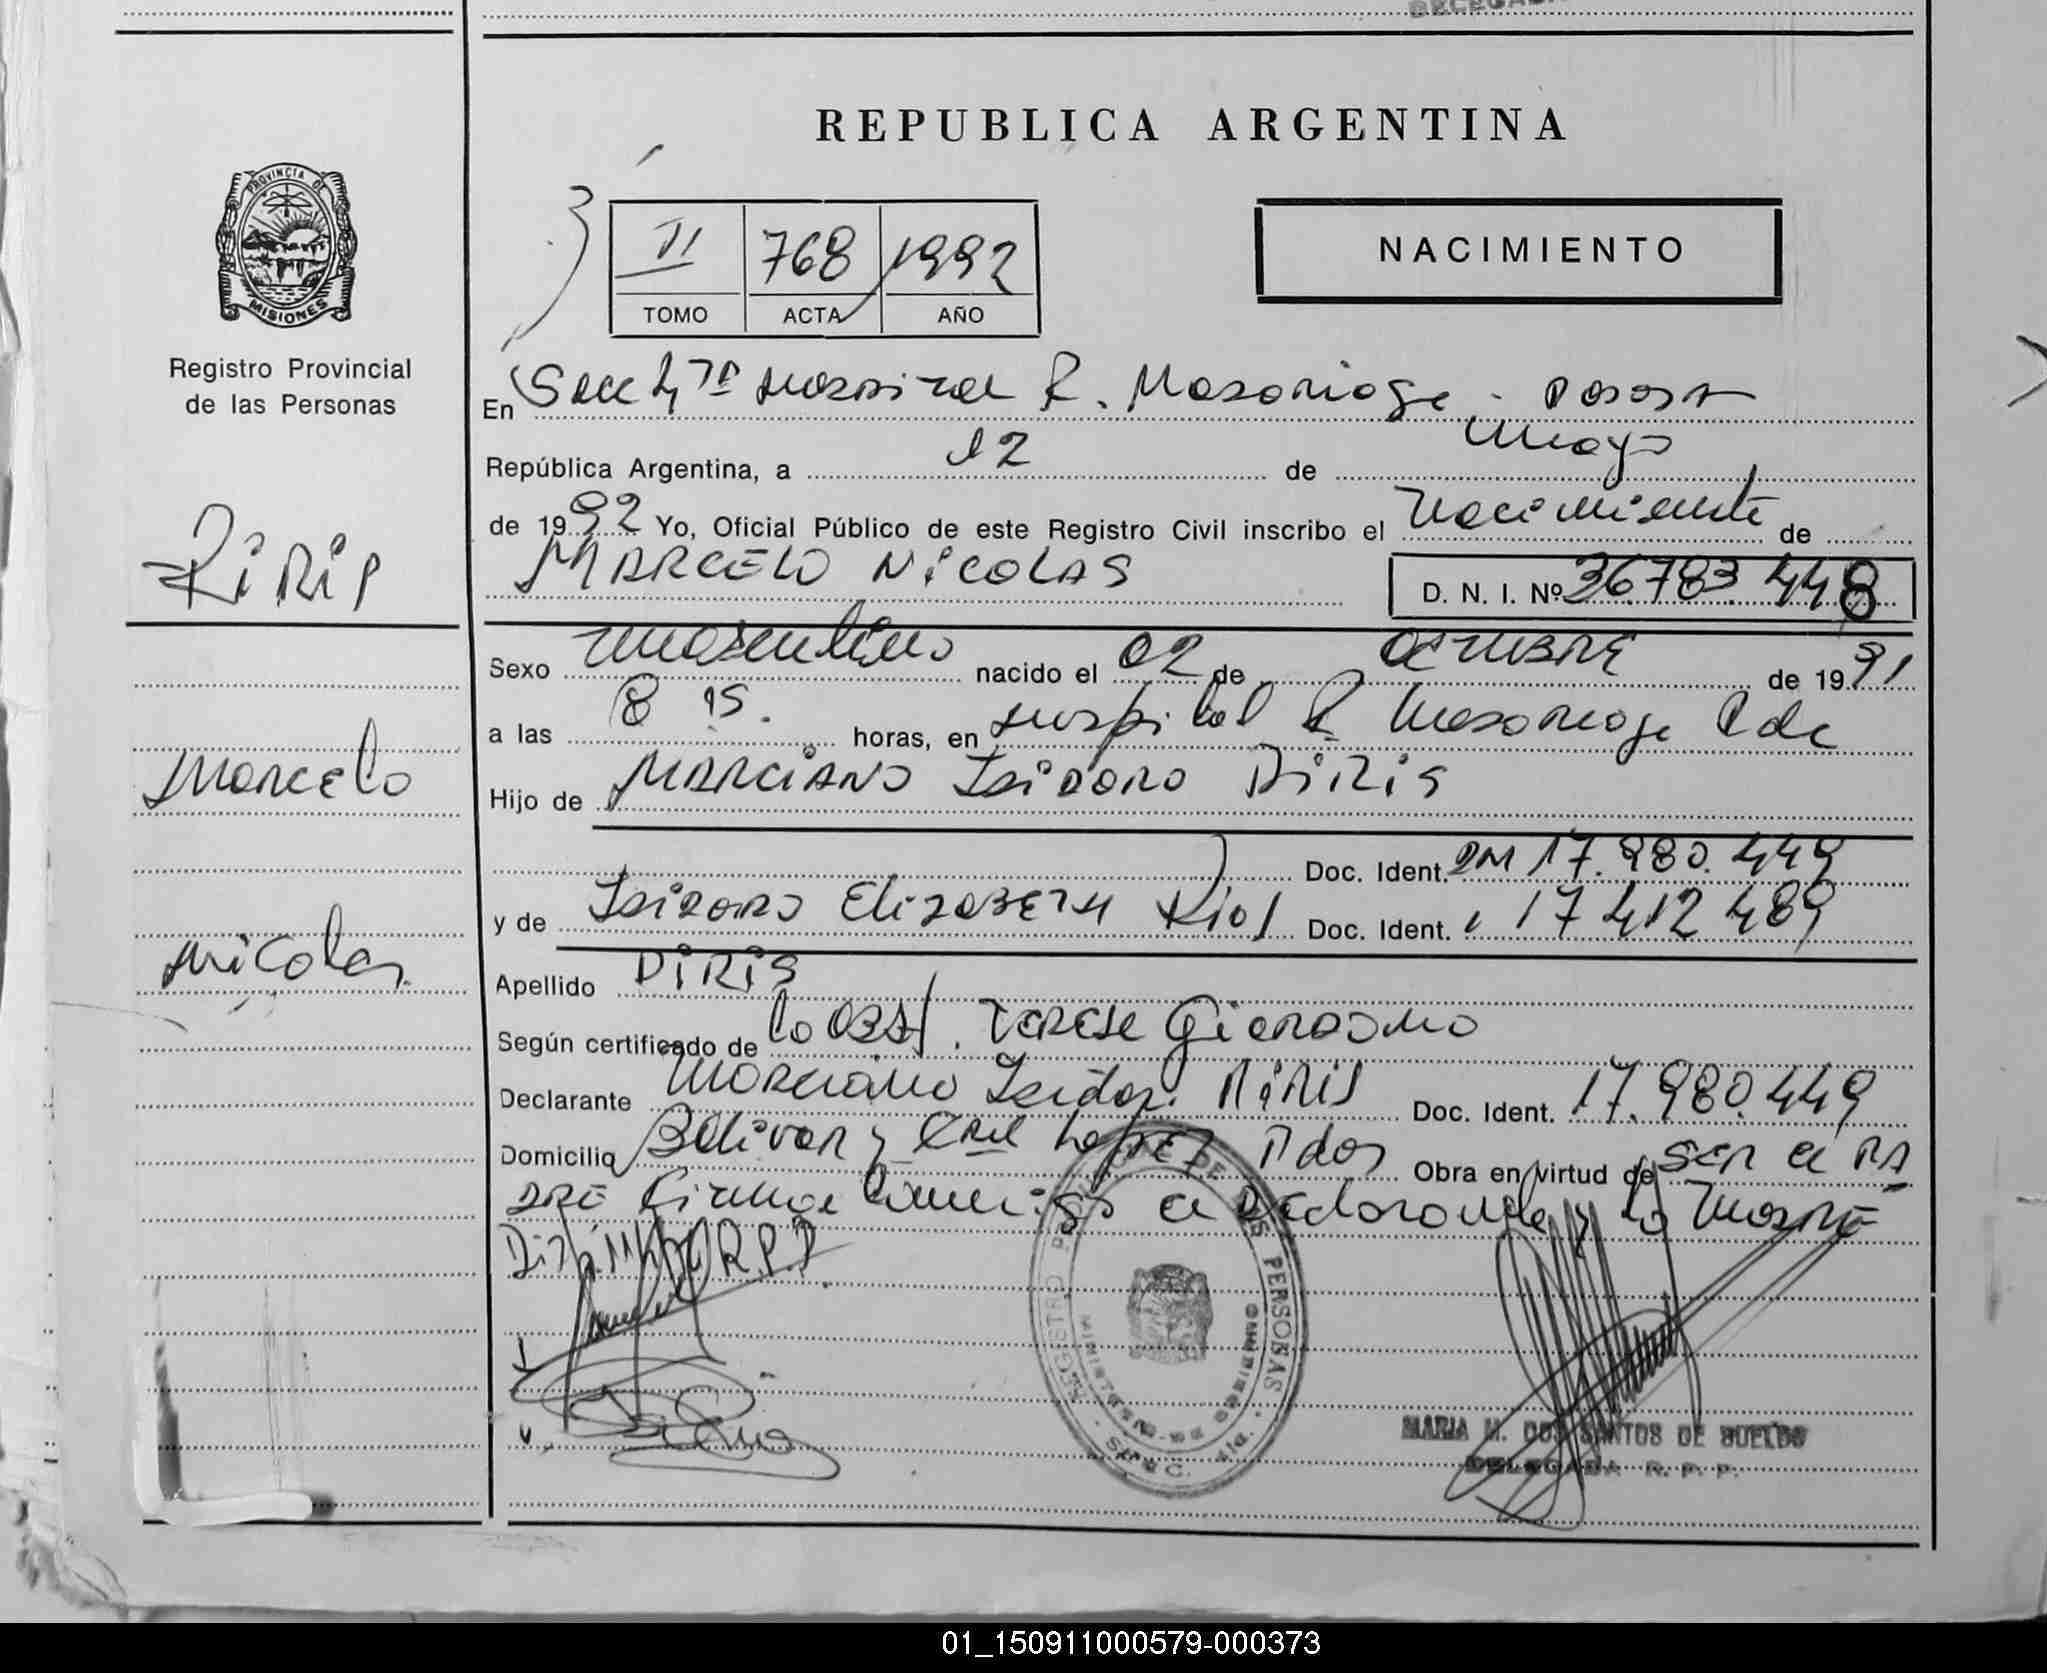 REPUBLICA ARGENTINA
PROVINCIA DE
MISIONES
Registro Provincial
de las Personas
II 768 1992
TOMO ACTA AÑO
NACIMIENTO
En Secc 4ta Hospital R. Madariaga
República Argentina, a 12 de Mayo
de 1992 Yo, Oficial Público de este Registro Civil inscribo el Nacimiento de
MARCELO NICOLAS D. N. I. Nº 36783.448
Sexo masculino nacido el 02 de OCTUBRE de 1991
a las 8 15. horas, en Hospital R Madariaga Pdas
Hijo de MARCIANO Isidoro PIRIS
Doc. Ident. DNI 17.980.449
y de Isidora Elizabeth Rios Doc. Ident. 17 412 489
Apellido PIRIS
Según certificado de la Obst.
Declarante Marciano Isidoro PIRIS Doc. Ident. 17.980.449
Domicilio Bolivar y Gral Lopez Pdas Obra en virtud de ser el PA
DRE Firma Conmigo el Declarante y la MADRE
PIRIS
Marcelo
Nicolas
REGISTRO PROVINCIAL DE LAS PERSONAS
MINISTERIO DE GOBIERNO
MARIA M. DOS SANTOS DE BUELDO
DELEGADA R. P. P.
01_150911000579-000373